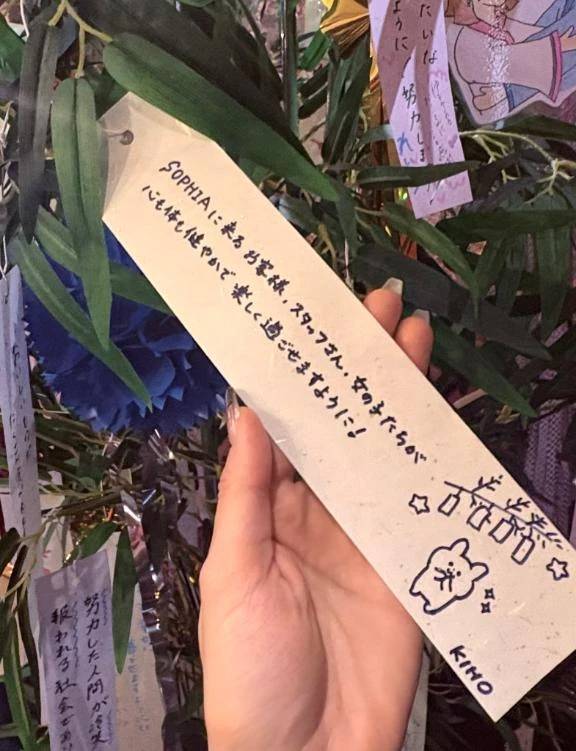 SOPHIAに来るお客様、スタッフさん、女の子たちが
心も体も健やかで楽しく過ごせますように!
KIHO
たいな
ように
努力しま
努力した人間が
報われる社会